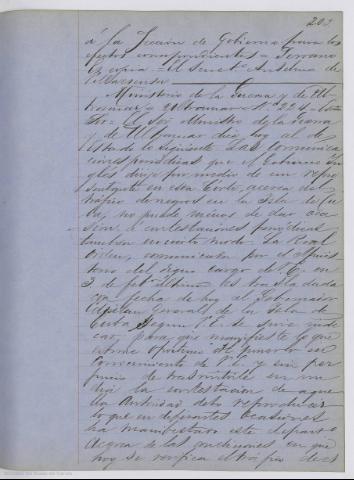 203
á la Seccion de Gobierno para los
efectos correspondientes = Serrano
Es copia = El Secret.º Anselmo de
Villaescusa
Ministerio de la Guerra y de Ul-
tramar = Ultramar = N.º 224 = Exmo
Sor = El Sor Ministro de la Guerra
y de Ultramar dice hoy al de
Estado lo siguiente = Las comunica-
ciones periódicas que el Gobierno In-
gles dirige por medio de su repre-
sentante en esta Corte, acerca del
tráfico de negros en la Isla de Cu-
ba, no puede menos de dar oca-
sion á contestaciones periódicas
tambien en cierto modo. La Real
orden, comunicada por el Ministe-
rio del digno cargo de V.E. en
3 de feb.º último, es trasladada
con fecha de hoy al Gobernador
Capitan General de la Isla de
Cuba segun V.E. se sirve indi-
car, para que manifieste lo que
estime oportuno al ponerlo en
conocimiento de V.E. y sin per-
juicio de trasmitirle en su
dia la contestacion de aque-
lla Autoridad debo reproducir
lo que en diferentes ocasiones
ha manifestado este departº
acerca de las condiciones en que
hoy se verifica el tráfico de es